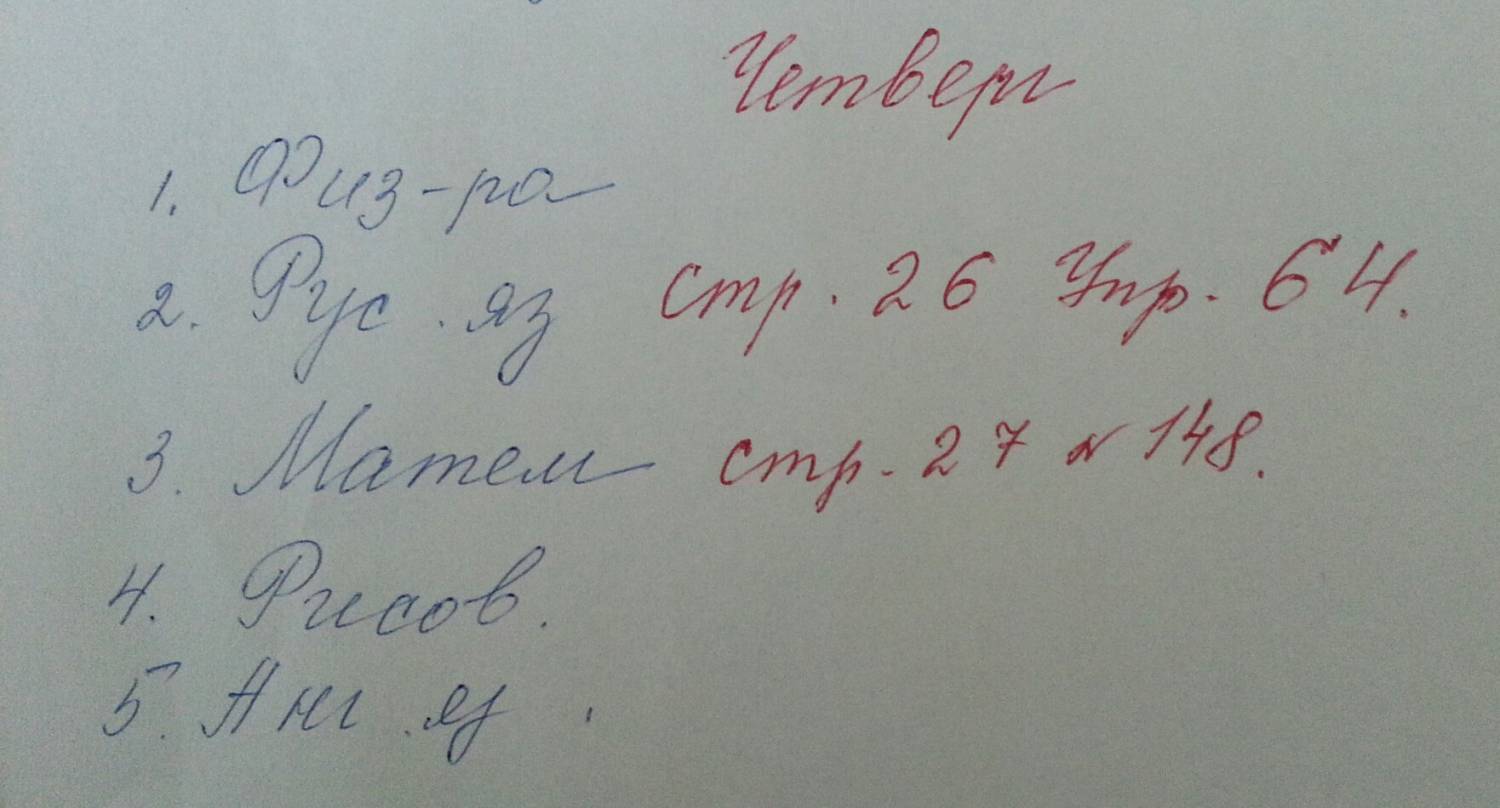 Четверг
1. Физ-ра
2. Рус. яз стр. 26 Упр. 64.
3. Матем стр. 27 № 148.
4. Рисов.
5. Анг. яз.